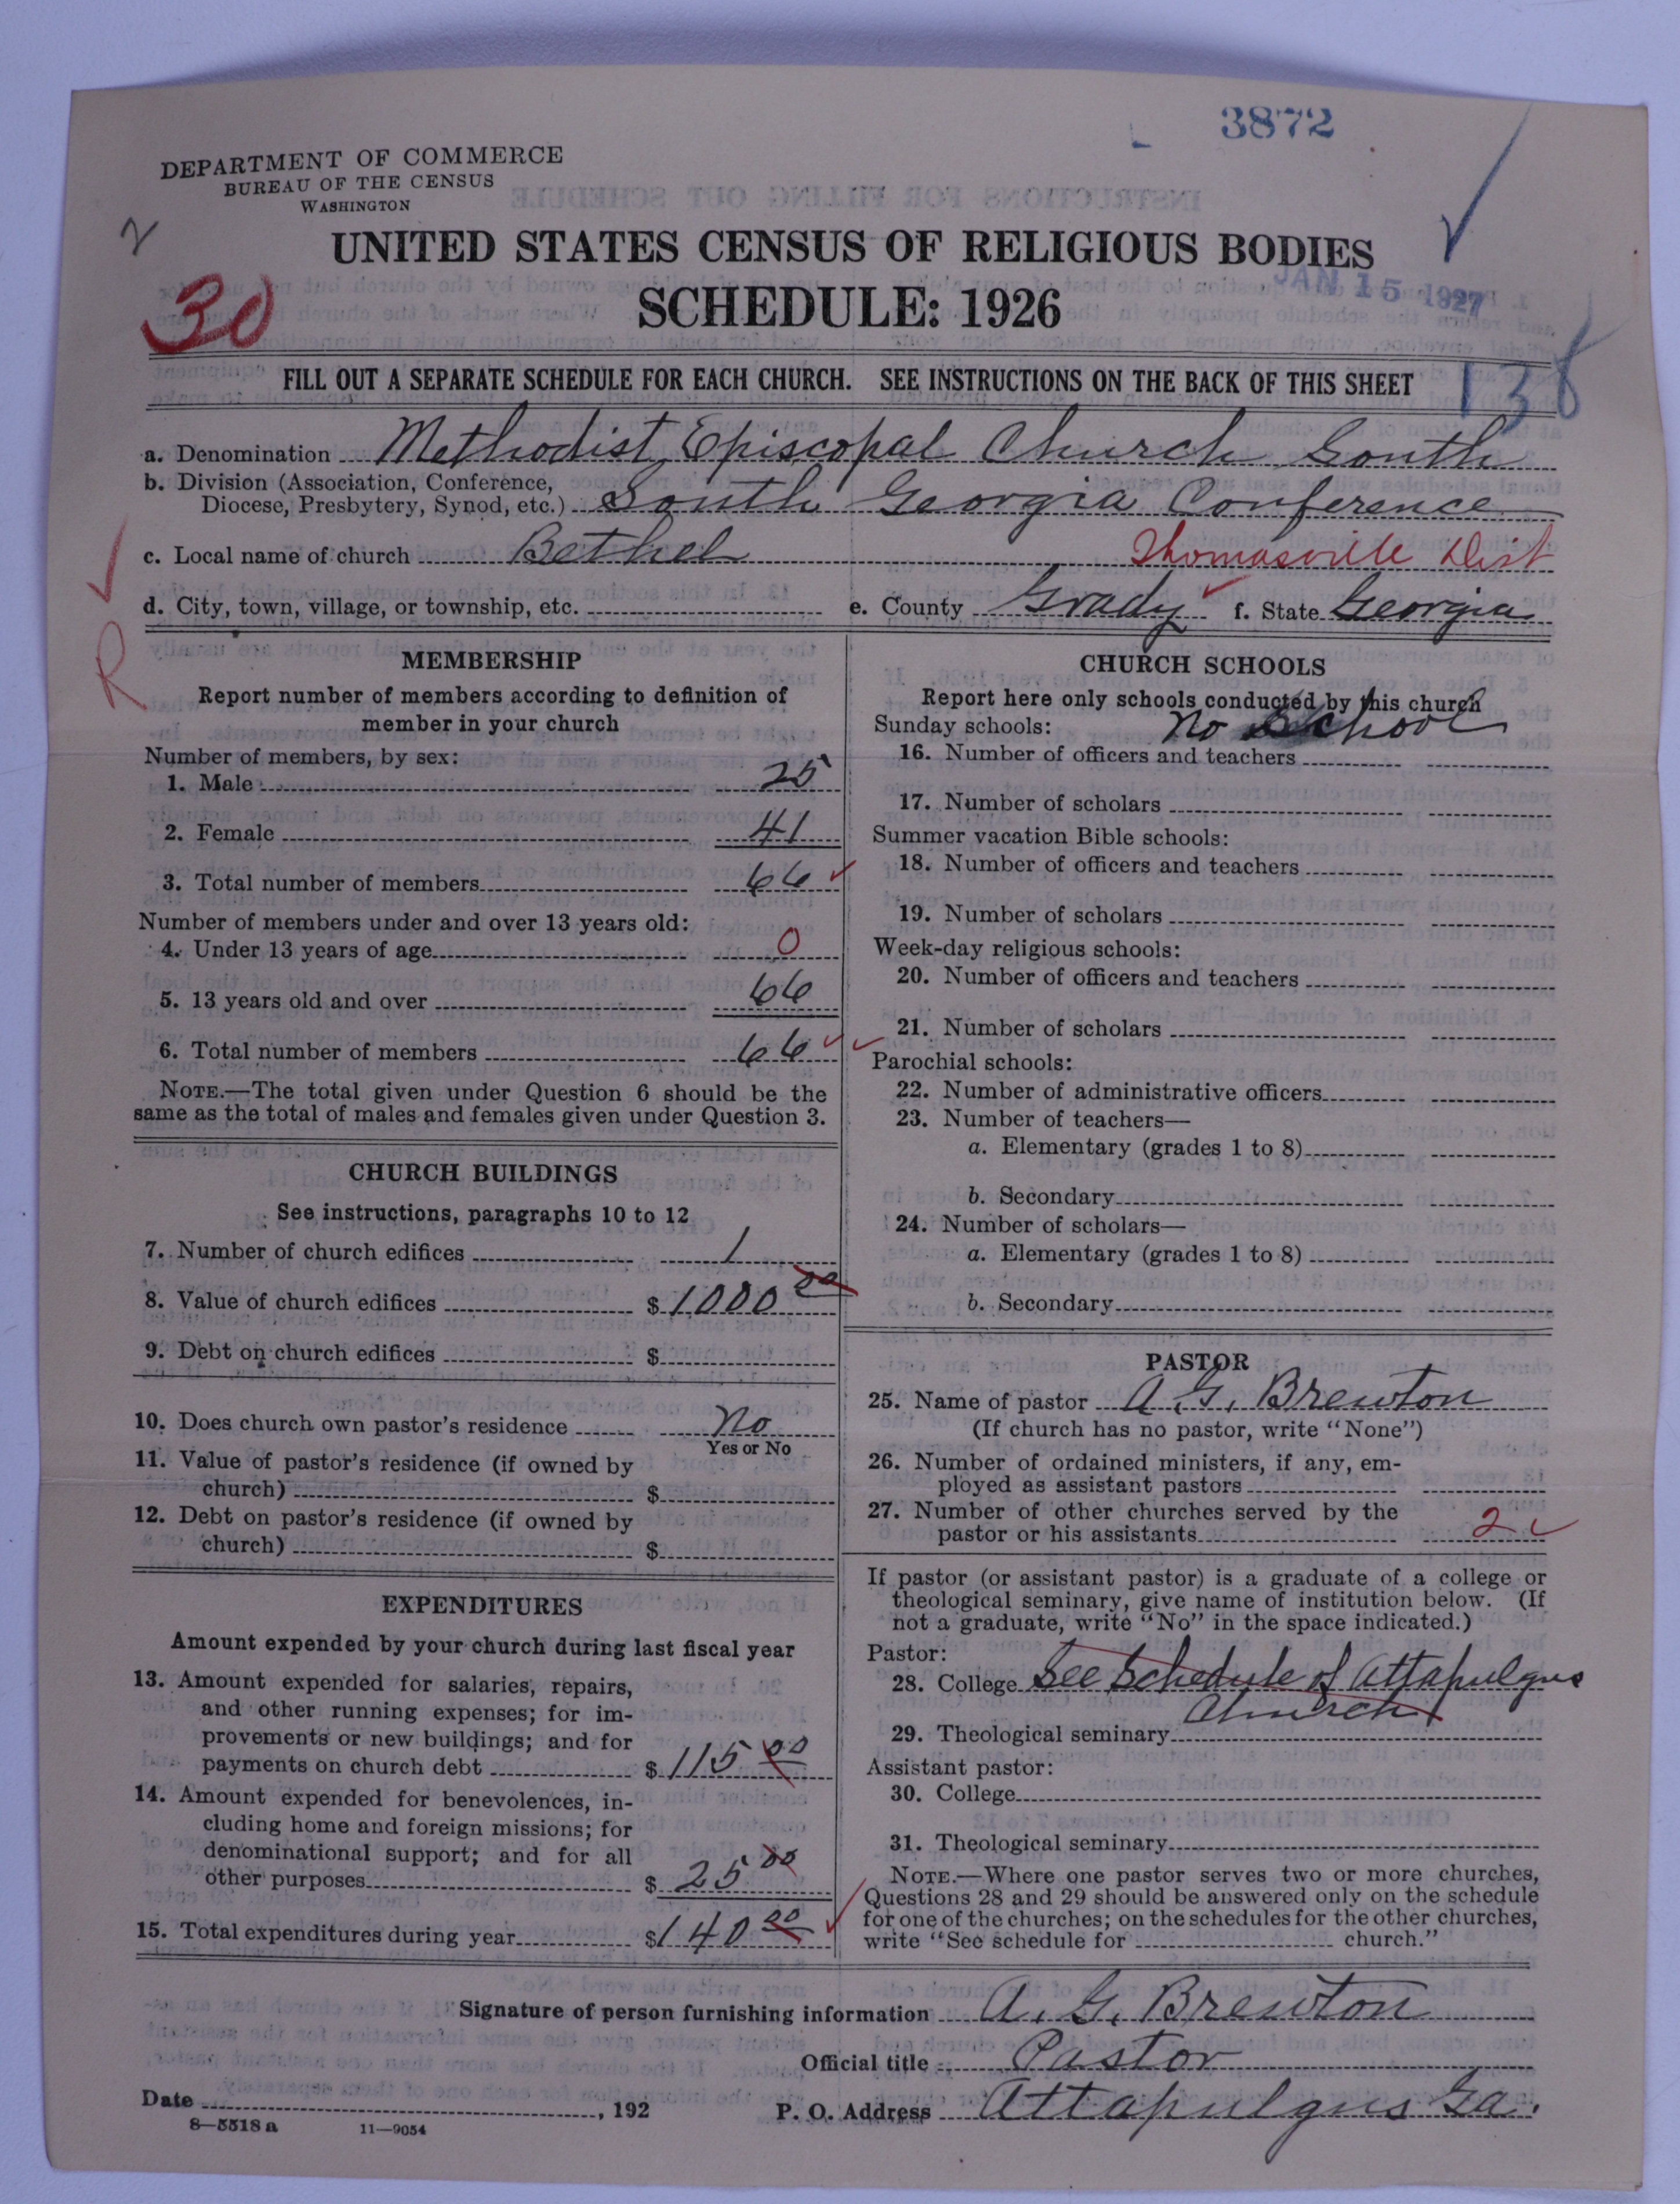 3872
DEPARTMENT OF COMMERCE
BUREAU OF THE CENSUS
WASHINGTON
2
UNITED STATES CENSUS OF RELIGIOUS BODIES
JAN 15 1927
30
SCHEDULE: 1926
138
FILL OUT A SEPARATE SCHEDULE FOR EACH CHURCH. SEE INSTRUCTIONS ON THE BACK OF THIS SHEET
a. Denomination Methodist Episcopal Church South
b. Division (Association, Conference,
Diocese, Presbytery, Synod, etc.) South Georgia Conference
c. Local name of church Bethel Thomasville Dist
d. City, town, village, or township, etc. e. County Grady f. State Georgia
R
MEMBERSHIP
Report number of members according to definition of
member in your church
Number of members, by sex:
1. Male 25
2. Female 41
3. Total number of members 66
Number of members under and over 13 years old:
4. Under 13 years of age 0
5. 13 years old and over 66
6. Total number of members 66
NOTE.—The total given under Question 6 should be the
same as the total of males and females given under Question 3.
CHURCH BUILDINGS
See instructions, paragraphs 10 to 12
7. Number of church edifices 1
8. Value of church edifices $ 1000 00
9. Debt on church edifices $
10. Does church own pastor's residence No
Yes or No
11. Value of pastor's residence (if owned by
church) $
12. Debt on pastor's residence (if owned by
church) $
EXPENDITURES
Amount expended by your church during last fiscal year
13. Amount expended for salaries, repairs,
and other running expenses; for im-
provements or new buildings; and for
payments on church debt $ 115 00
14. Amount expended for benevolences, in-
cluding home and foreign missions; for
denominational support; and for all
other purposes $ 25 00
15. Total expenditures during year $ 140 00
CHURCH SCHOOLS
Report here only schools conducted by this church
Sunday schools: No School
16. Number of officers and teachers
17. Number of scholars
Summer vacation Bible schools:
18. Number of officers and teachers
19. Number of scholars
Week-day religious schools:
20. Number of officers and teachers
21. Number of scholars
Parochial schools:
22. Number of administrative officers
23. Number of teachers—
a. Elementary (grades 1 to 8)
b. Secondary
24. Number of scholars—
a. Elementary (grades 1 to 8)
b. Secondary
PASTOR
25. Name of pastor A. G. Brewton
(If church has no pastor, write "None")
26. Number of ordained ministers, if any, em-
ployed as assistant pastors
27. Number of other churches served by the
pastor or his assistants 2
If pastor (or assistant pastor) is a graduate of a college or
theological seminary, give name of institution below. (If
not a graduate, write "No" in the space indicated.)
Pastor:
28. College See Schedule of Attapulgus
Church
29. Theological seminary
Assistant pastor:
30. College
31. Theological seminary
NOTE.—Where one pastor serves two or more churches,
Questions 28 and 29 should be answered only on the schedule
for one of the churches; on the schedules for the other churches,
write "See schedule for church."
Signature of person furnishing information A. G. Brewton
Official title Pastor
Date , 192 P. O. Address Attapulgus Ga.
8—5518 a 11—9054